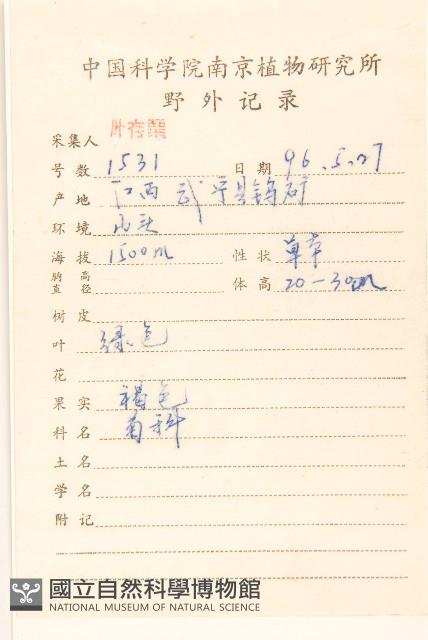 中国科学院南京植物研究所
野外记录
采集人 叶存粟
号数 1531 日期 96.5.27
产地 江西 武平县钨矿
环境 山头
海拔 1500m 性状 草本
胸高直径 体高 20-30cm
树皮
叶 绿色
花
果实 褐色
科名 菊科
土名
学名
附记
國立自然科學博物館
NATIONAL MUSEUM OF NATURAL SCIENCE